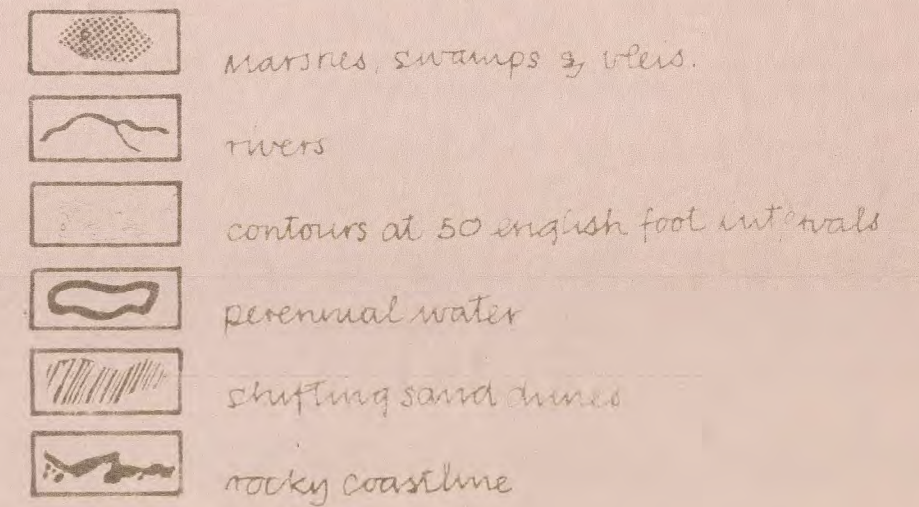 Marshes, swamps & vleis.
rivers
contours at 50 english foot intervals
perennial water
shifting sand dunes
rocky coastline